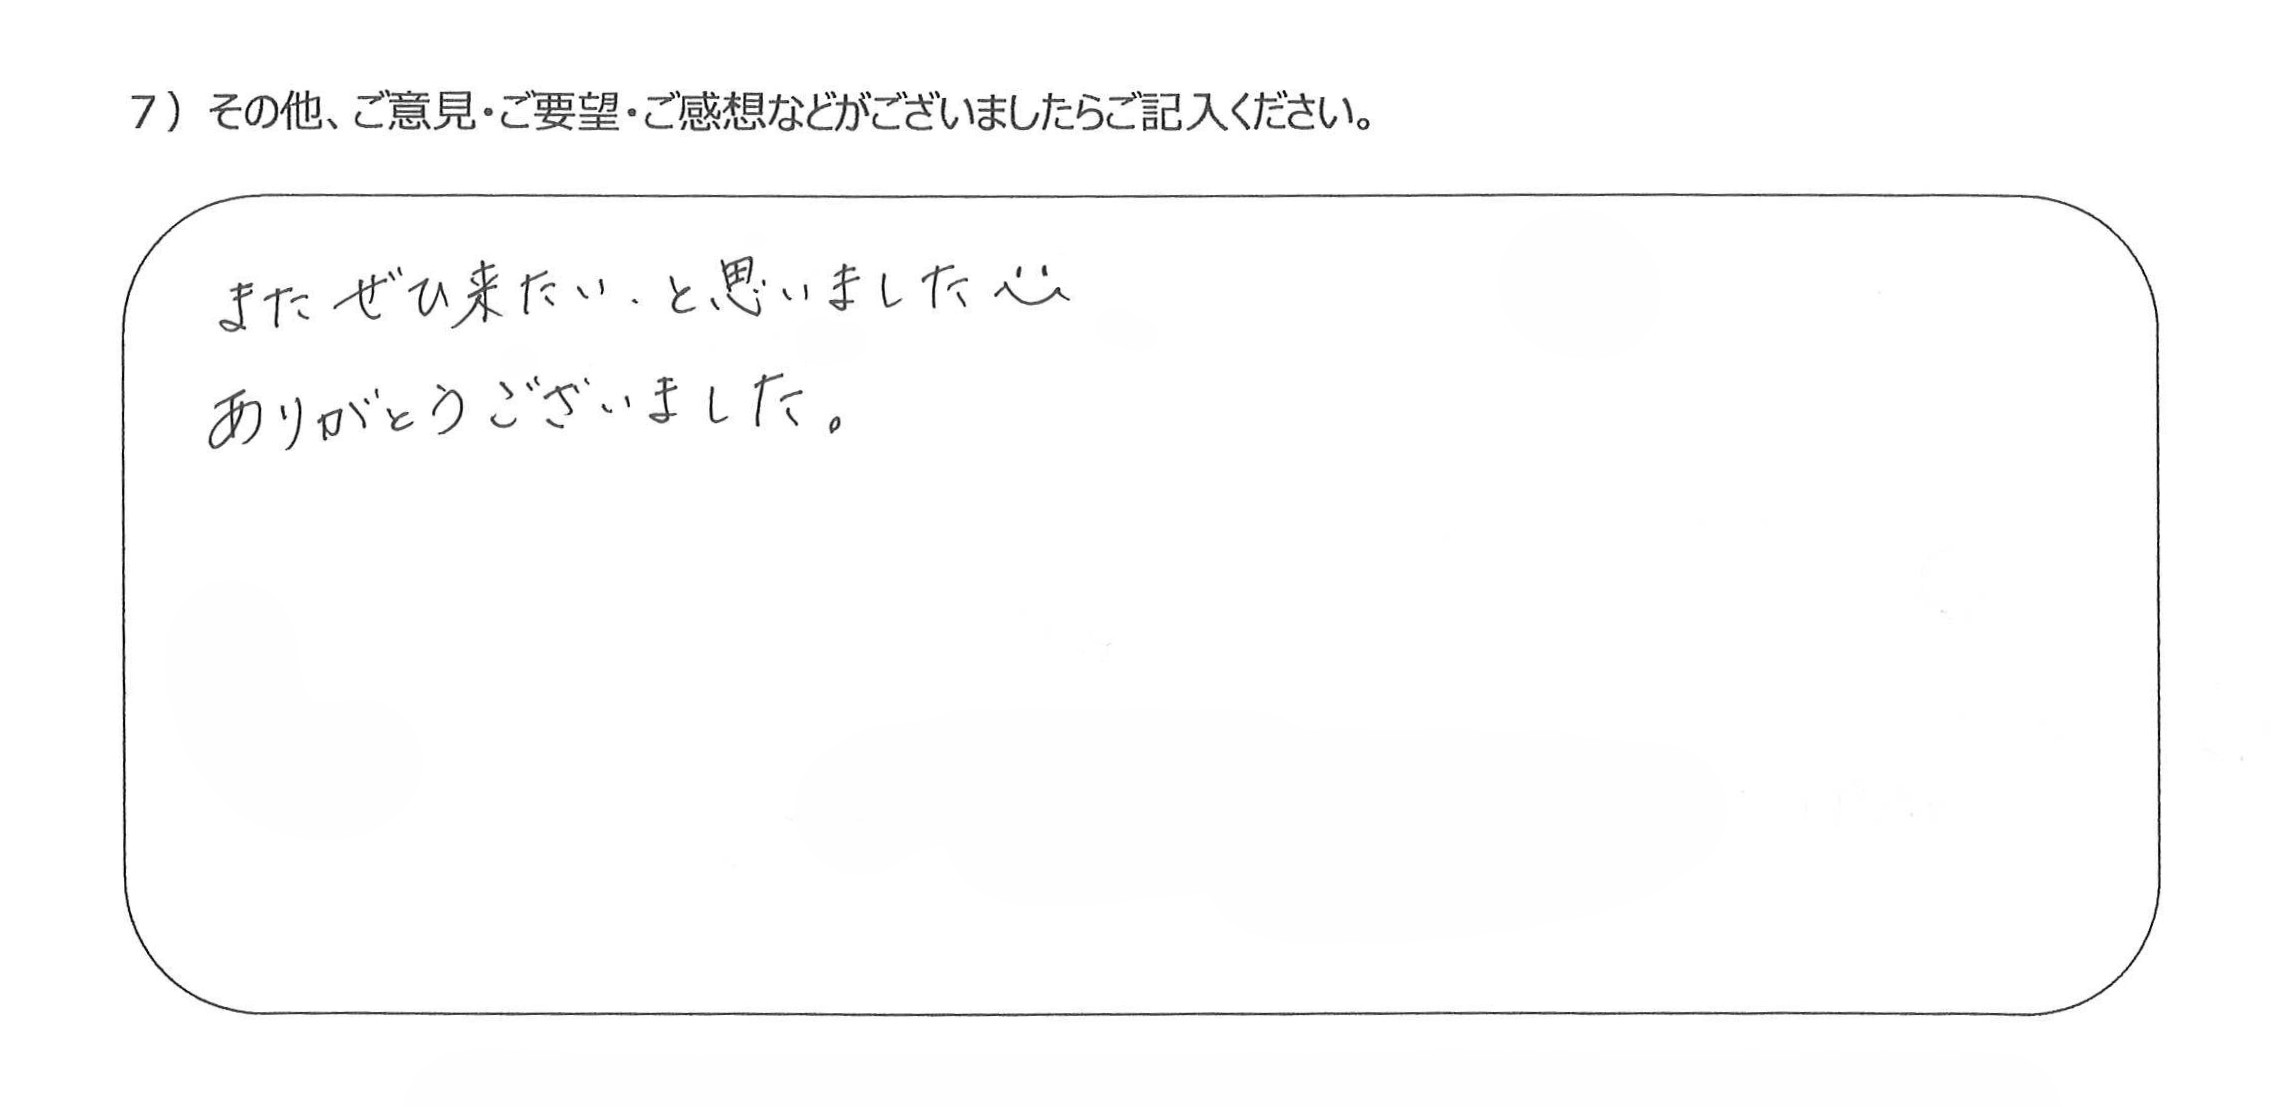 7）その他、ご意見・ご要望・ご感想などがございましたらご記入ください。
またぜひ来たい、と思いました
ありがとうございました。